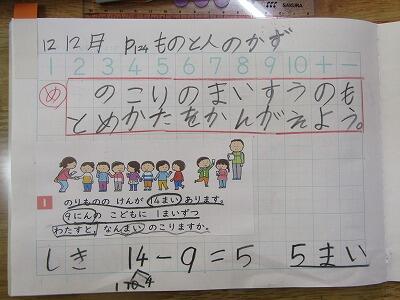 12 12月 P124ものと人のかず
1 2 3 4 5 6 7 8 9 10 + −
め のこりのまいすうのも
とめかたをかんがえよう。
1
のりものの けんが 14まい あります。
9にんの こどもに 1まいずつ
わたすと、なんまい のこりますか。
しき 14−9=5 5まい
10 4